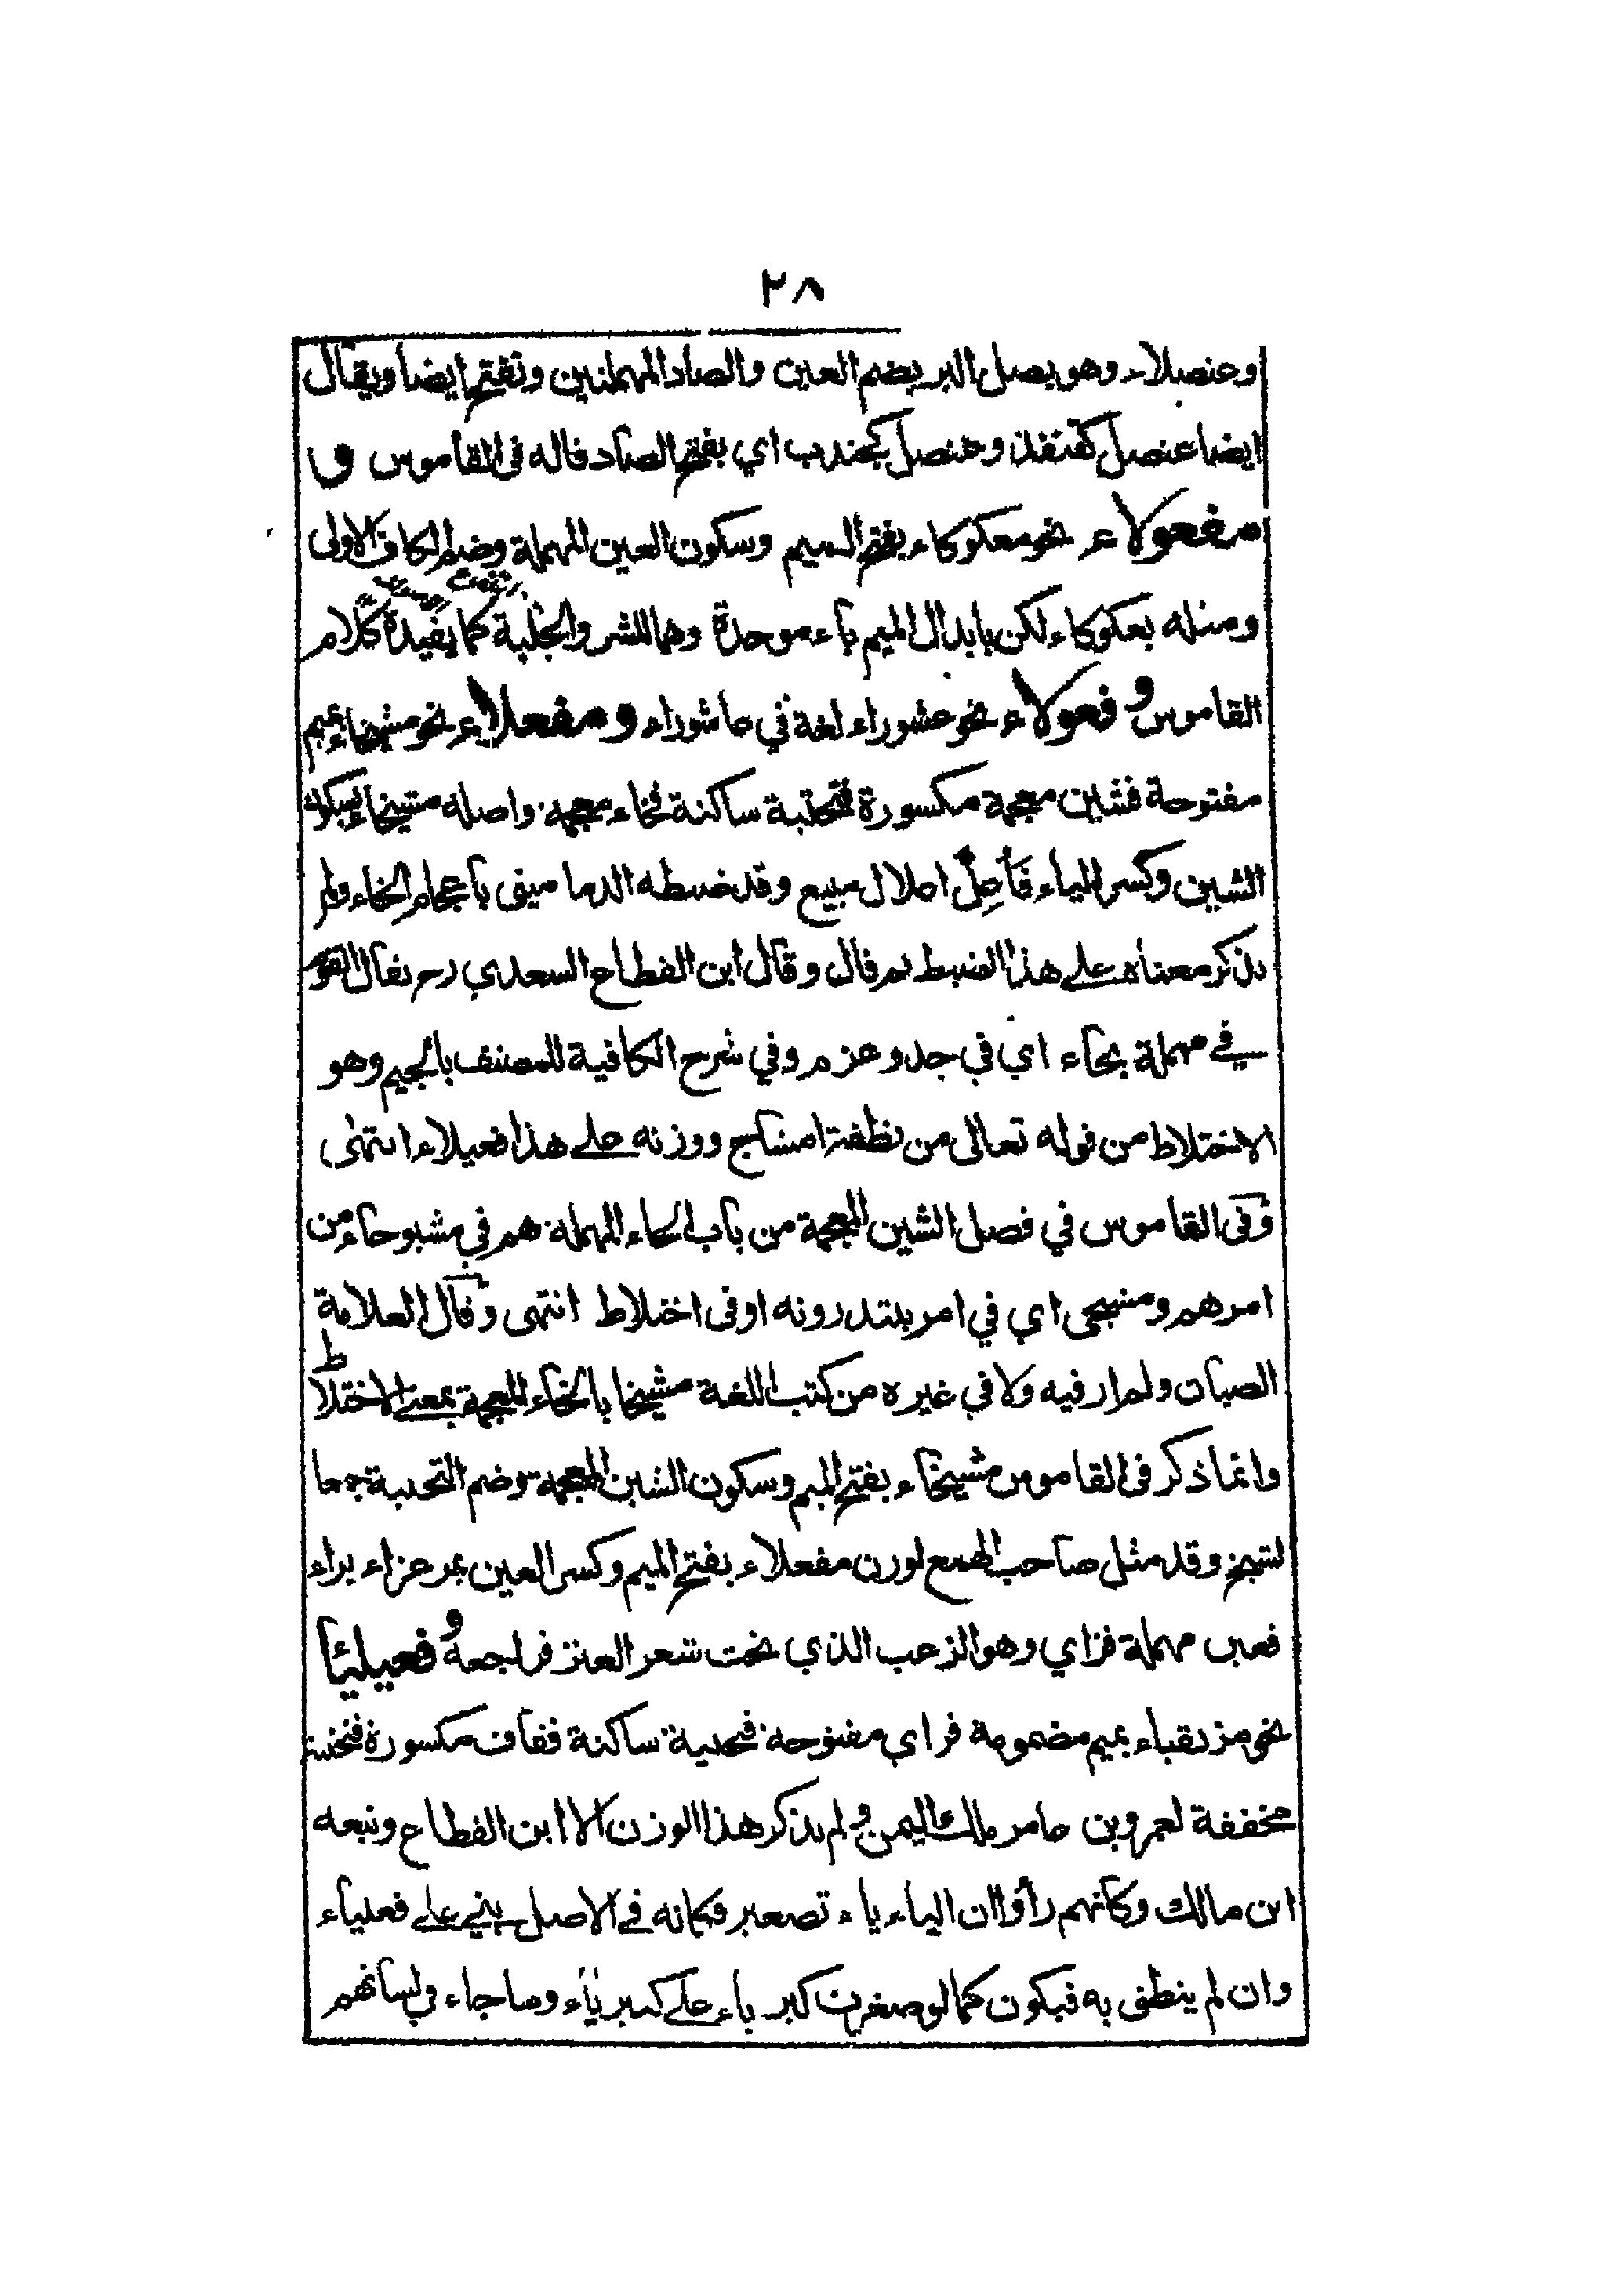 ٢٨
وعنصلاء وهو بصل البر بضم العين والصاد المهملتين وتفتح ايضا ويقال
ايضا عنصل كقنفذ وعنصل كجندب اي بفتح الصاد قاله فى القاموس و
مفعولاء نحو معكوكاء بفتح الميم وسكون العين المهملة وضم الكاف الاولى
ومثله بعكوكاء لكن بابدال الميم باء موحدة وهما للشر والجلبة كما يفيده كلام
القاموس و فعولاء نحو عشوراء لغة في عاشوراء ومفعلاء نحو مشيخاء بميم
مفتوحة فشين معجمة مكسورة فتحتية ساكنة فخاء معجمة واصله مشيخاء بسكون
الشين وكسر الياء فَأُعِلَّ اعلال مبيع وقد ضبطه الدمامينى باعجام الخاء ولم
يذكر معناه على هذا الضبط ثم قال وقال ابن القطاع السعدي رح يقال القوم
في مهملة بحاء اي في جد وعزم وفي شرح الكافية للمصنف بالجيم وهو
الاختلاط من قوله تعالى من نطفة امشاج ووزنه على هذا فعيلاء انتهى
وفى القاموس في فصل الشين المعجمة من باب الحاء المهملة هم في مشيوحاء من
امرهم ومشيحى اي في امر يبتدرونه او فى اختلاط انتهى وقال العلامة
الصبان ولم ار فيه ولا في غيره من كتب اللغة مشيخا بالخاء المعجمة بمعنى الاختلاط
وانما ذكر فى القاموس مشيخاء بفتح الميم وسكون الشين المعجمة وضم التحتية جمعا
لشيخ وقد مثل صاحب الهمع لوزن مفعلاء بفتح الميم وكسر العين بمرعزاء براء
فعين مهملة فزاي وهو الزغب الذي تحت شعر العنز فراجعه و فعيليا
نحو مزيقياء بميم مضمومة فزاي مفتوحة فتحتية ساكنة فقاف مكسورة فتحتية
مخففة لعمرو بن عامر ملك اليمن ولم يذكر هذا الوزن الا ابن القطاع وتبعه
ابن مالك وكأنهم رأوا ان الياء ياء تصغير فكانه في الاصل بني على فعلياء
وان لم ينطق به فيكون كما لو صغرت كبرياء على كبيرياء وما جاء في لسانهم